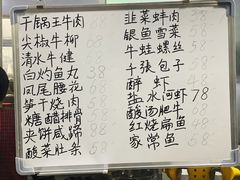 干锅王牛肉
尖椒牛柳
清水牛健
白灼鱼丸 38
凤尾腰花
笋干烧肉
糖醋排骨
夹饼咸蹄
酸菜肚条
韭菜蚌肉
银鱼雪菜
牛蛙螺丝
千张包子
醉虾
盐水河虾 78
酸汤肥牛
红烧扁鱼
家常鱼